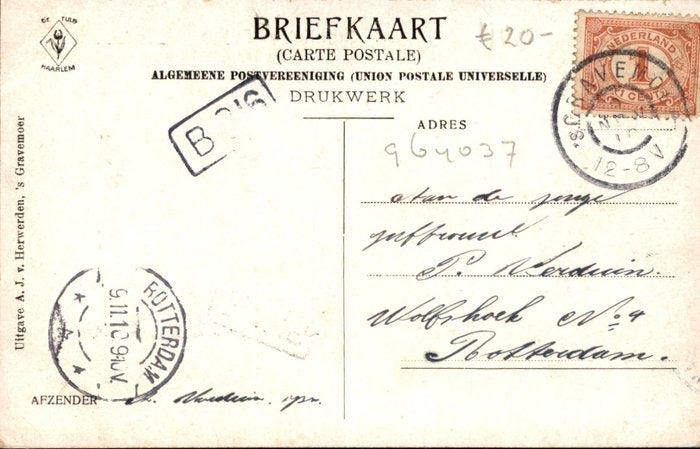 DE TULP
HAARLEM
BRIEFKAART
(CARTE POSTALE)
ALGEMEENE POSTVEREENIGING (UNION POSTALE UNIVERSELLE)
DRUKWERK
€ 20-
NEDERLAND
1
CENT
12-8V
ADRES
964037
Aan de jonge
juffrouw
P. Verduin.
Wolfshoek No 4
Rotterdam.
Uitgave A. J. v. Herwerden, 's Gravemoer
ROTTERDAM
9.11.10 9-10V
AFZENDER
Verduin